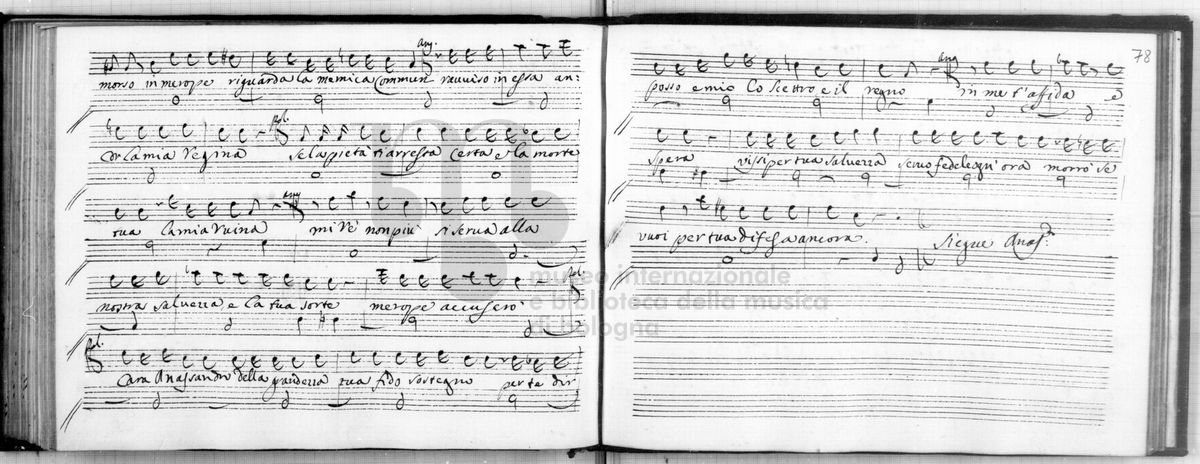 Ang.
morso in merope riguarda la nemica commun ravviso in essa an:
Pol.
cor la mia Regina se la pietà t'arresta certa è la morte
Ang.
tua la mia ruina mi Rè non più si serva alla
Pol.
nostra salvezza e la tua sorte merope accuserò
Pol.
Caro Anassandro della grandezza tua fido sostegno per te dir
78
Ang.
posso è mio lo scettro e il regno in me t'affida e
spera vissi per tua salvezza servo fedele ogn'ora morrò se
vuoi per tua difesa ancora. Siegue Anas.
museo internazionale
e biblioteca della musica
di bologna